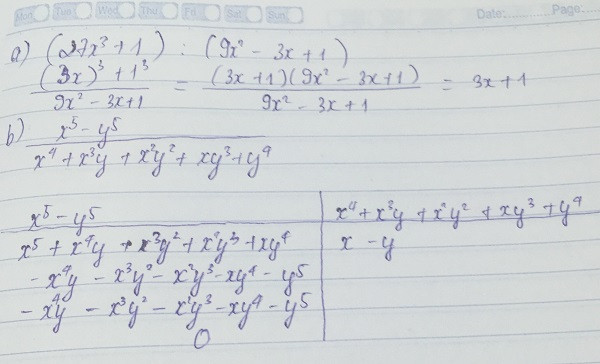 Mon Tue Wed Thu Fri Sat Sun Date: Page:
a) (27x³ + 1) : (9x² - 3x + 1)
(3x)³ + 1³ / 9x² - 3x + 1 = (3x + 1)(9x² - 3x + 1) / 9x² - 3x + 1 = 3x + 1
b) x⁵ - y⁵ / x⁴ + x³y + x²y² + xy³ + y⁴
x⁵ - y⁵ | x⁴ + x³y + x²y² + xy³ + y⁴
x⁵ + x⁴y + x³y² + x²y³ + xy⁴ | x - y
- x⁴y - x³y² - x²y³ - xy⁴ - y⁵
- x⁴y - x³y² - x²y³ - xy⁴ - y⁵
0